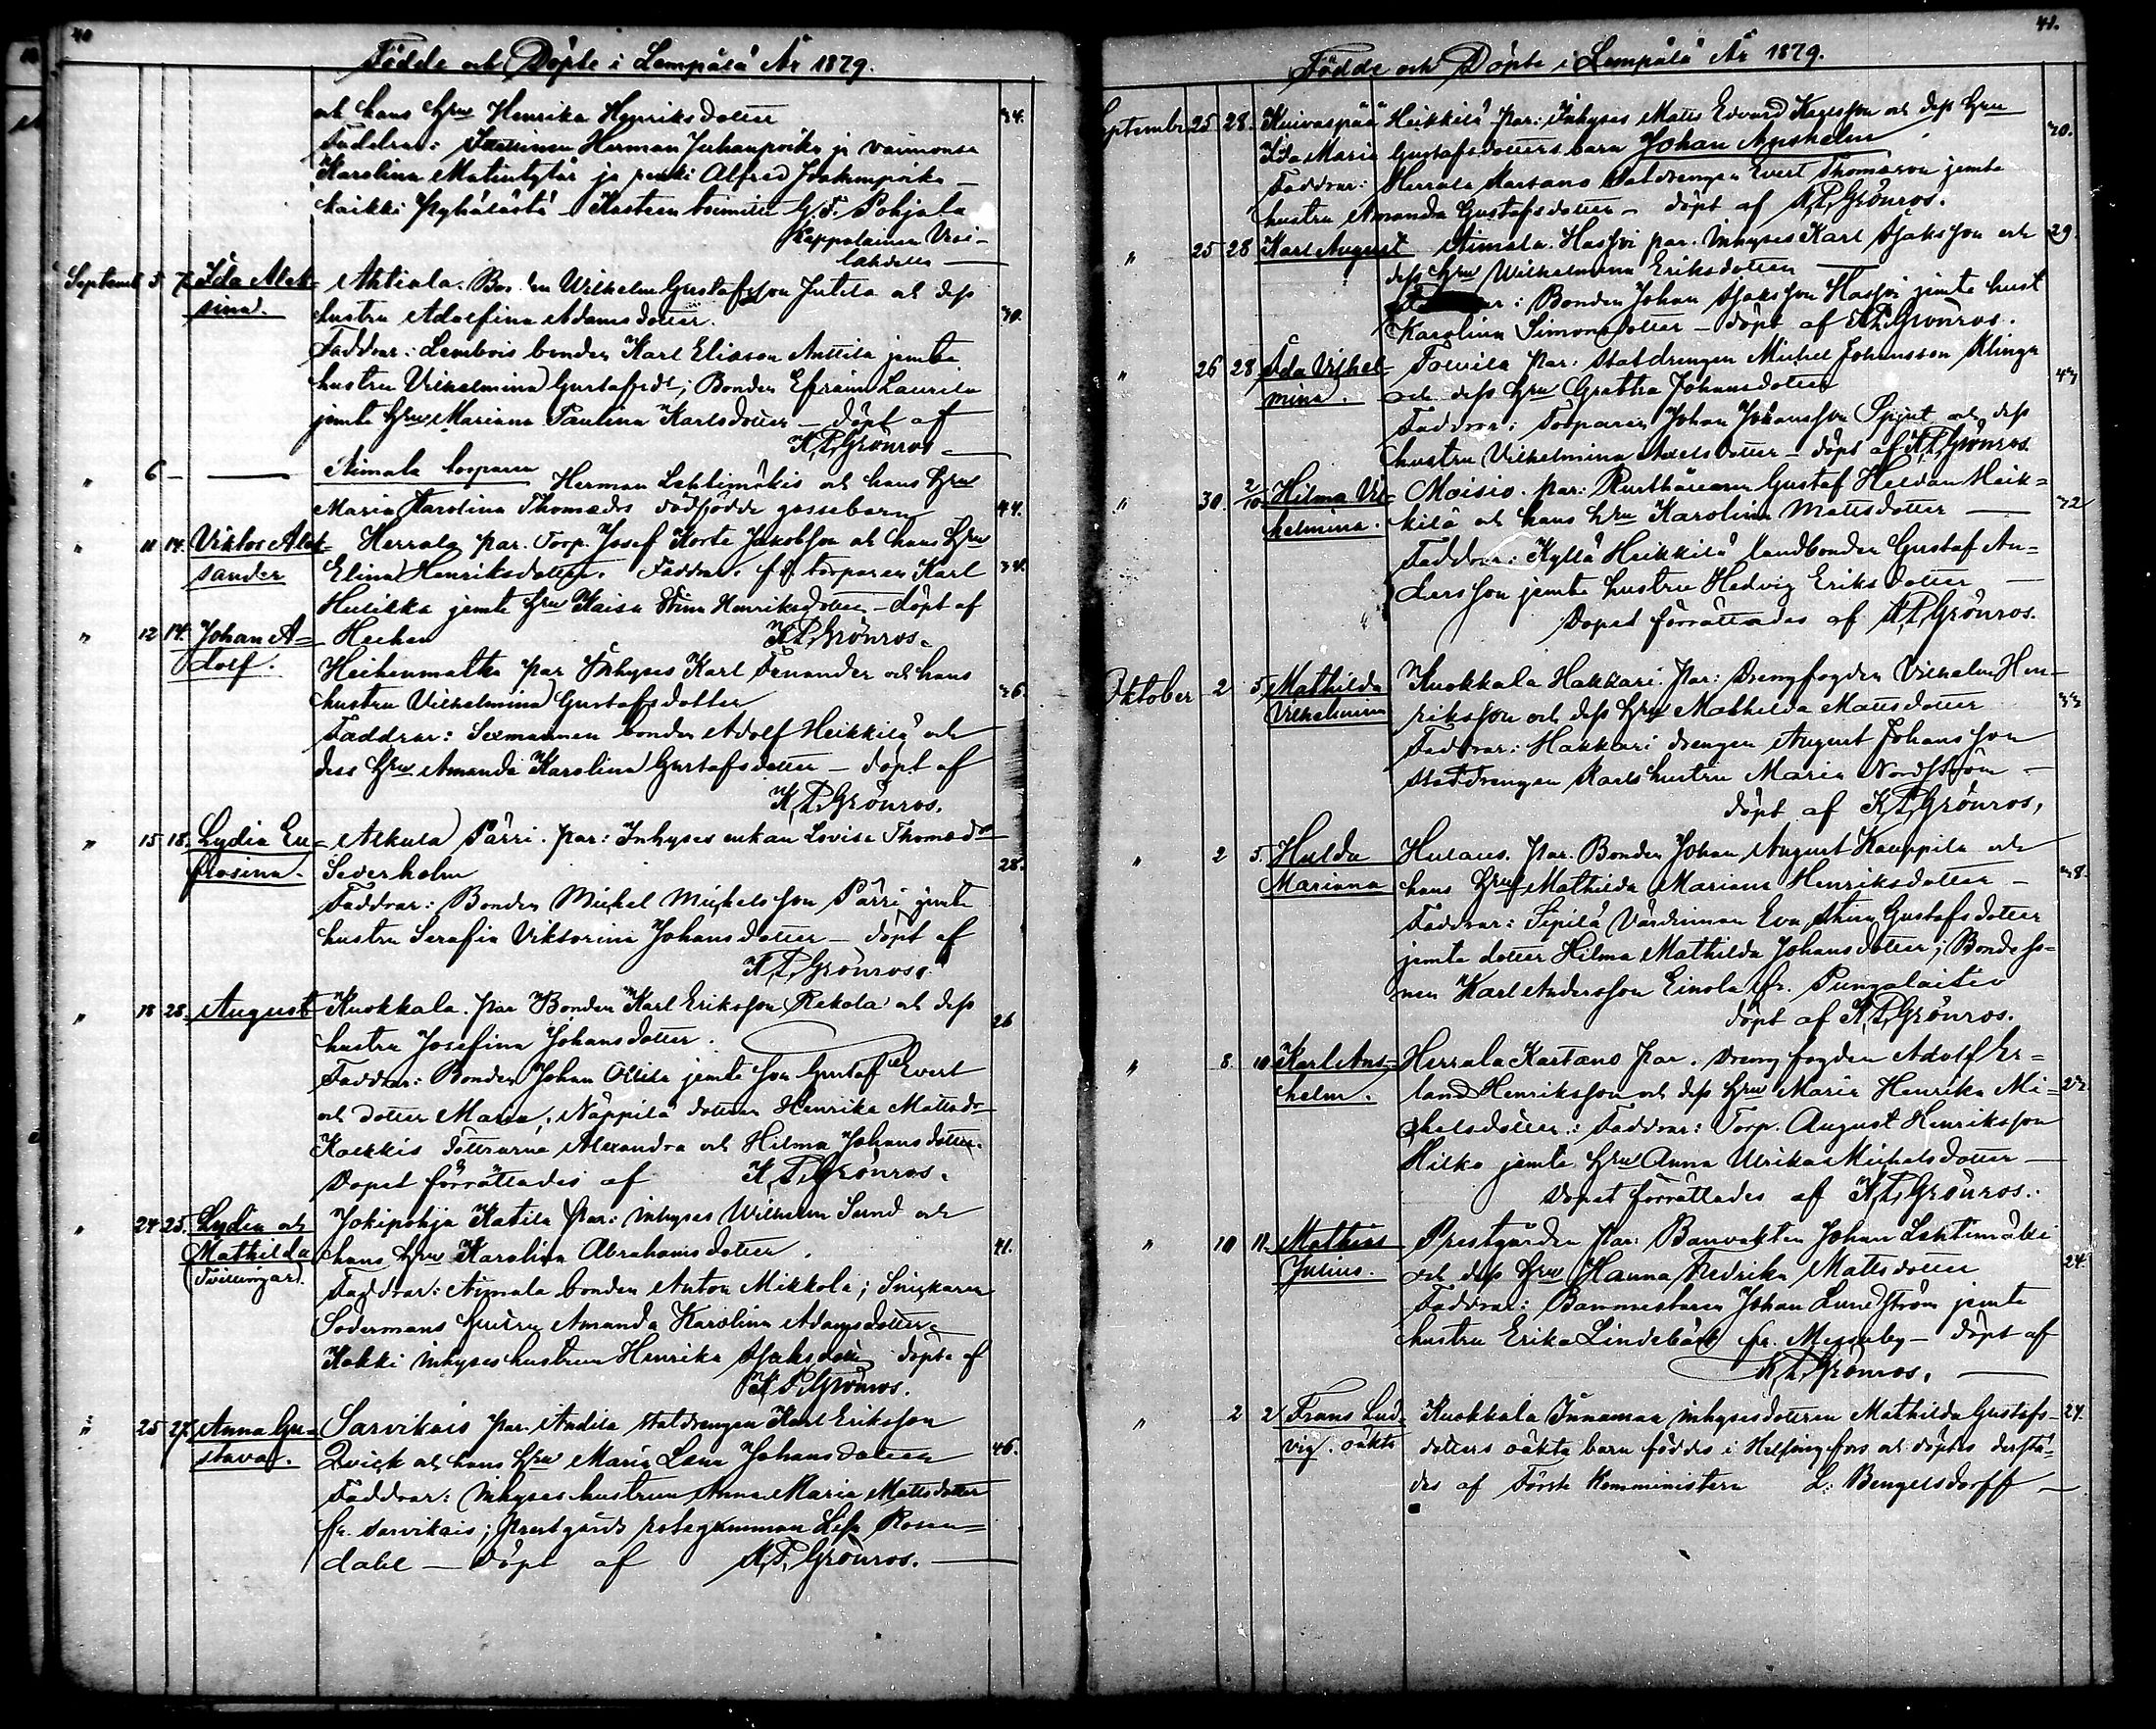 40
Födde och Döpte i Lempälä År 1879.
och hans hru Henrika Henriksdotter 34.
Faddrar: Herman Juhanpoika ja vaimonsa
Karolina Matintytär ja Alfred
kaikki Pyhäjästä Kasteen toimitti G. F. Pohjala
Kappalainen Vesi-
lahdella
Septemb 5 7. Ida Alek- Ahtiala. Bonden Wilhelm Gustafsson Jutila och dess
sina. hustru Adolfina Adamsdotter. 30.
Faddrar: Lembois bonden Karl Eliasson Anttila jemte
hustru Vilhelmina Gustafsdr; Bonden Efraim Laurila
jemte hru Mariana Paulina Karlsdotter – döpt af
K. P. Grönros
" 6 – — Aimala torparen Herman Lehtimäkis och hans hru
Maria Karolina Thomædrs dödfödde gossebarn 44.
" 11 14. Viktor Alek- Herrala par. Torp. Josef Korte Jakobsson och hans hru
sander Elina Henriksdotter. Faddrar: torparen Karl 34.
Hulikka jemte hru Kaisa Stina Henriksdotter – döpt af
" 12 14. Johan A- Heiken K. P. Grönros.
dolf. Heikenmatka par Inhyses Karl Fenander och hans
hustru Vilhelmina Gustafsdotter 26.
Faddrar: Sexmannen bonden Adolf Heikkilä och
dess hru Amanda Karolina Gustafsdotter – döpt af
K. P. Grönros.
" 15 18. Lydia Eu- Alkula Pärri. par: Inhyses enkan Lovisa Thomædr
frosina. Sederholm 28.
Faddrar: Bonden Michel Michelsson Pärri jemte
hustru Serafia Viktorina Johansdotter – döpt af
K. P. Grönros.
" 18 28. August Kuokkala. par Bonden Karl Eriksson Rekola och dess
hustru Josefina Johansdotter. 26
Faddrar: Bonden Johan Ollila jemte son Gustaf Evert
och dotter Maria; Näppilä dottren Henrika Mattsdr
Kaekkis döttrarna Alexandra och Hilma Johansdotter.
Dopet förrättades af K. P. Grönros.
" 24 25. Lydia och Jokipohja Katila par: inhyses Wilhelm Sund och
Mathilda hans hru Karolina Abrahamsdotter. 41.
(Tvillingar). Faddrar: Aimala bonden Anton Mikkola; Snickaren
Södermans hustru Amanda Karolina Adamsdotter
Kakki inhyseshustrun Henrika Isaksdotter döpte af
K. P. Grönros.
" 25 27. Anna Gu- Sarvikais par. Andila statdrengen Karl Eriksson
stava. Qvick och hans hru Maria Lena Johansdotter 46.
Faddrar: inhyses hustrun Anna Maria Mattsdotter
fr. Sarvikais; prestgårds rotegumman Lisa Rosen-
dahl – döpt af K. P. Grönros.
41.
Födde och Döpte i Lempälä År 1879.
September 25 28. Kuivaspää Heikkilä par: Inhyses Matts Edvard Karlsson och dess hru
Ida Maria Gustafsdotters barn Johan Anshelm 20.
Faddrar: Herrala Kartano statdrengen Evert Thomasson jemte
hustru Amanda Gustafsdotter – döpt af K. P. Grönros.
" 25 28 Karl August Aimala. Hassi par. inhyses Karl Isaksson och 29.
dess hru Wilhelmina Eriksdotter
: Bonden Johan Isaksson Hassi jemte hust
Karolina Simonsdotter – döpt af K. P. Grönros.
" 26 28 Ida Vilhel- par: statdrengen Michel Johansson Klinga
mina. och dess hru Gretha Johansdotter 43
Faddrar: Torparen Johan Johansson Spjut och dess
hustru Vilhelmina Axelsdotter – döpt af K. P. Grönros.
" 30. 2/10 Hilma Vil- Moisio. par: Gustaf Heik-
helmina. kilä och hans hru Karolina Mattsdotter — 32
Faddrar: Kyllä Heikkilä landbonden Gustaf An-
dersson jemte hustru Hedvig Eriksdotter —
Dopet förrättades af K. P. Grönros.
Oktober 2 5. Mathilda Kuokkala Hakkari. Par: Drengfogden Vilhelm Hen-
Vilhelmina riksson och dess hru Mathilda Mattsdotter 33
Faddrar: Hakkari drengen August Johansson
statdrengen Karls hustru Maria Nordström –
döpt af K. P. Grönros,
" 2 5. Hulda Hulaus. Par. Bonden Johan August Kauppila och
Mariana hans hru Mathilda Mariana Henriksdotter – 38.
Faddrar: Sipilä Värdinnan Eva Stina Gustafsdotter
jemte dotter Hilma Mathilda Johansdotter; Bondeso-
nen Karl Andersson Einola fr. Pungalaitio
döpt af K. P. Grönros.
" 8. 10 Karl Ans- Herrala Kartano Par. Drengfogden Adolf Er-
helm. land Henriksson och dess hru Maria Henrika Mi- 23
chelsdotter.: Faddrar: Torp. August Henriksson
Hilko jemte hru Anna Ulrika Michelsdotter —
Dopet förrättades af K. P. Grönros.
" 10 11. Mathias Prestgården Par: Banvakten Johan Lehtimäki
Julius. och dess hru Hanna Fredrika Mattsdotter 24.
Faddrar: Banmestaren Johan Lundström jemte
hustru Erika Lindebäck fr. Messuby – döpt af
K. P. Grönros.
" 2 2 Frans Lud- Kuokkala Innamaa inhysesdottern Mathilda Gustafs- 24.
vig. oäkta dotters oäkta barn föddes i Helsingfors och döptes derstä-
des af Förste Komministern L. Bengelsdorff —